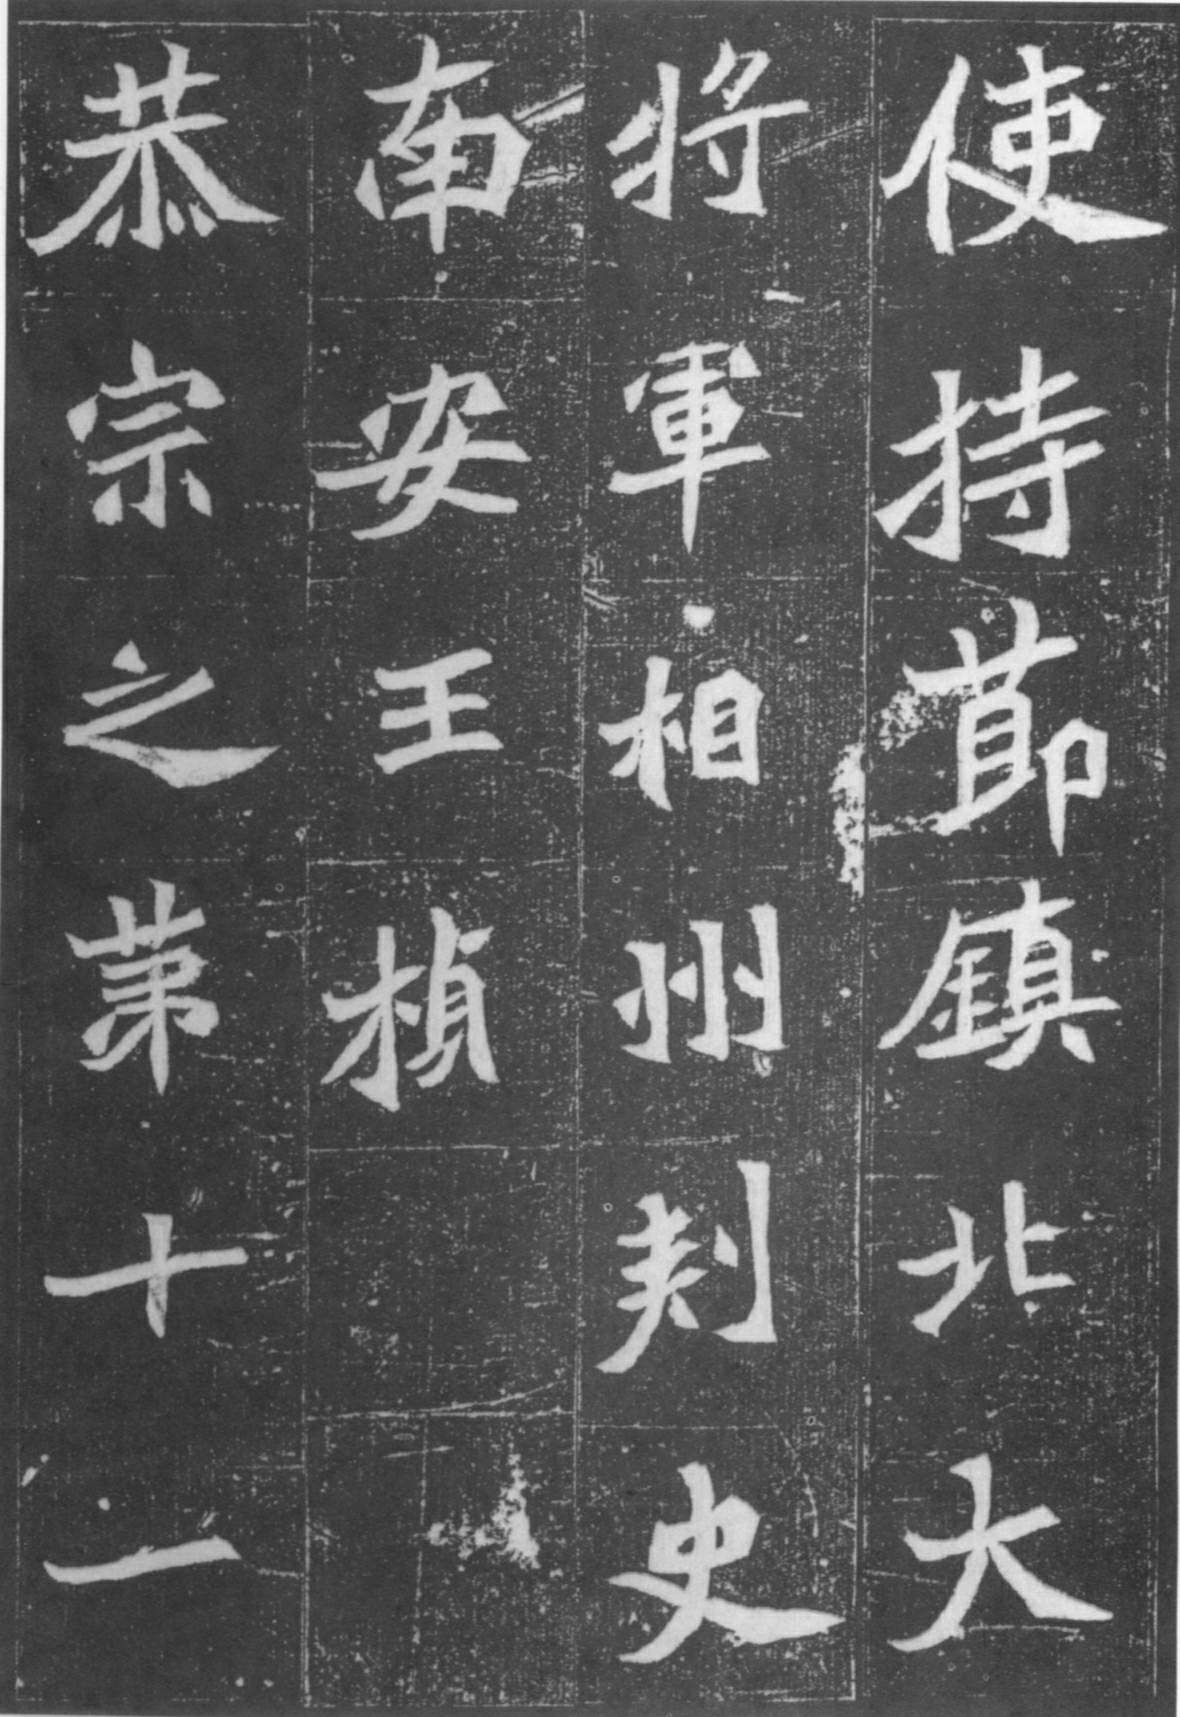 使持節鎮北大
将軍相州刺史
南安王楨
恭宗之第十一